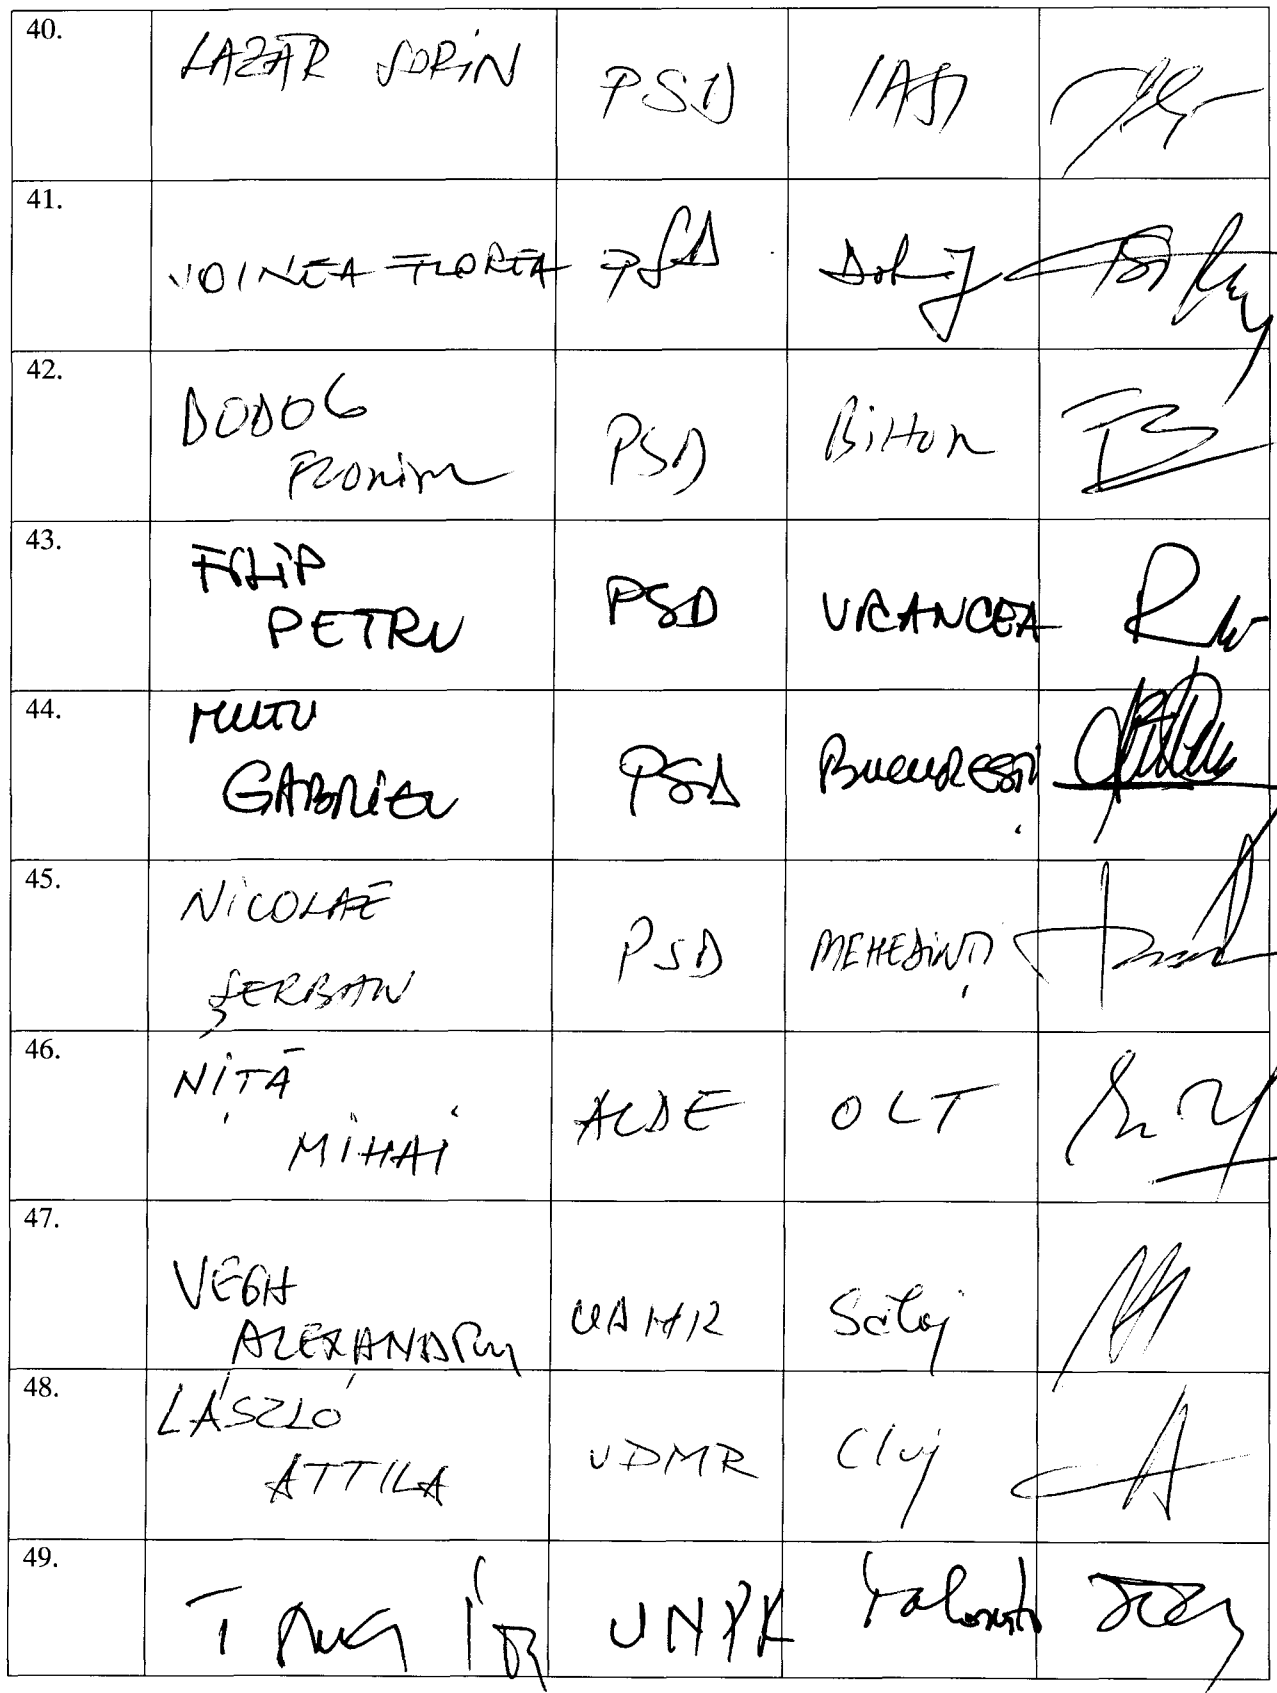 40. LAZĂR SORIN PSD IAȘI
41. VOINEA FLOREA PSD Dolj
42. DODOG
Florian PSD Bihor
43. FILIP
PETRU PSD VRANCEA
44. MUTU
GABRIEL PSD BUCUREȘTI
45. NICOLAE
ȘERBAN PSD MEHEDINȚI
46. NIȚĂ
MIHAI ALDE OLT
47. VEGH
ALEXANDRU UDMR Sălaj
48. LÁSZLÓ
ATTILA UDMR Cluj
49. UNPR